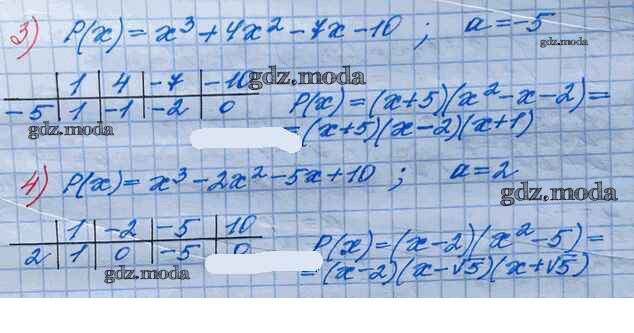 3) P(x) = x³ + 4x² - 7x - 10 ; a = -5
gdz.moda
1 | 4 | -7 | -10
gdz.moda
-5 | 1 | -1 | -2 | 0
P(x) = (x+5)(x² - x - 2) =
gdz.moda
= (x+5)(x-2)(x+1)
4) P(x) = x³ - 2x² - 5x + 10 ; a = 2
gdz.moda
1 | -2 | -5 | 10
2 | 1 | 0 | -5 | 0
P(x) = (x-2)(x² - 5) =
gdz.moda
= (x-2)(x-√5)(x+√5)